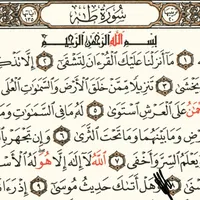 سُورَةُ طه
بِسْمِ ٱللَّهِ ٱلرَّحْمَٰنِ ٱلرَّحِيمِ
١ مَآ أَنزَلْنَا عَلَيْكَ ٱلْقُرْءَانَ لِتَشْقَىٰٓ ٢ إِلَّا
يَخْشَىٰ ٣ تَنزِيلًا مِّمَّنْ خَلَقَ ٱلْأَرْضَ وَٱلسَّمَٰوَٰتِ
عَلَى ٱلْعَرْشِ ٱسْتَوَىٰ ٥ لَهُۥ مَا فِى ٱلسَّمَٰوَٰتِ
وَمَا بَيْنَهُمَا وَمَا تَحْتَ ٱلثَّرَىٰ ٦ وَإِن تَجْهَرْ
يَعْلَمُ ٱلسِّرَّ وَأَخْفَى ٧ ٱللَّهُ لَآ إِلَٰهَ إِلَّا هُوَ لَهُ
وَهَلْ أَتَىٰكَ حَدِيثُ مُوسَىٰٓ ٩ إِذْ رَءَا